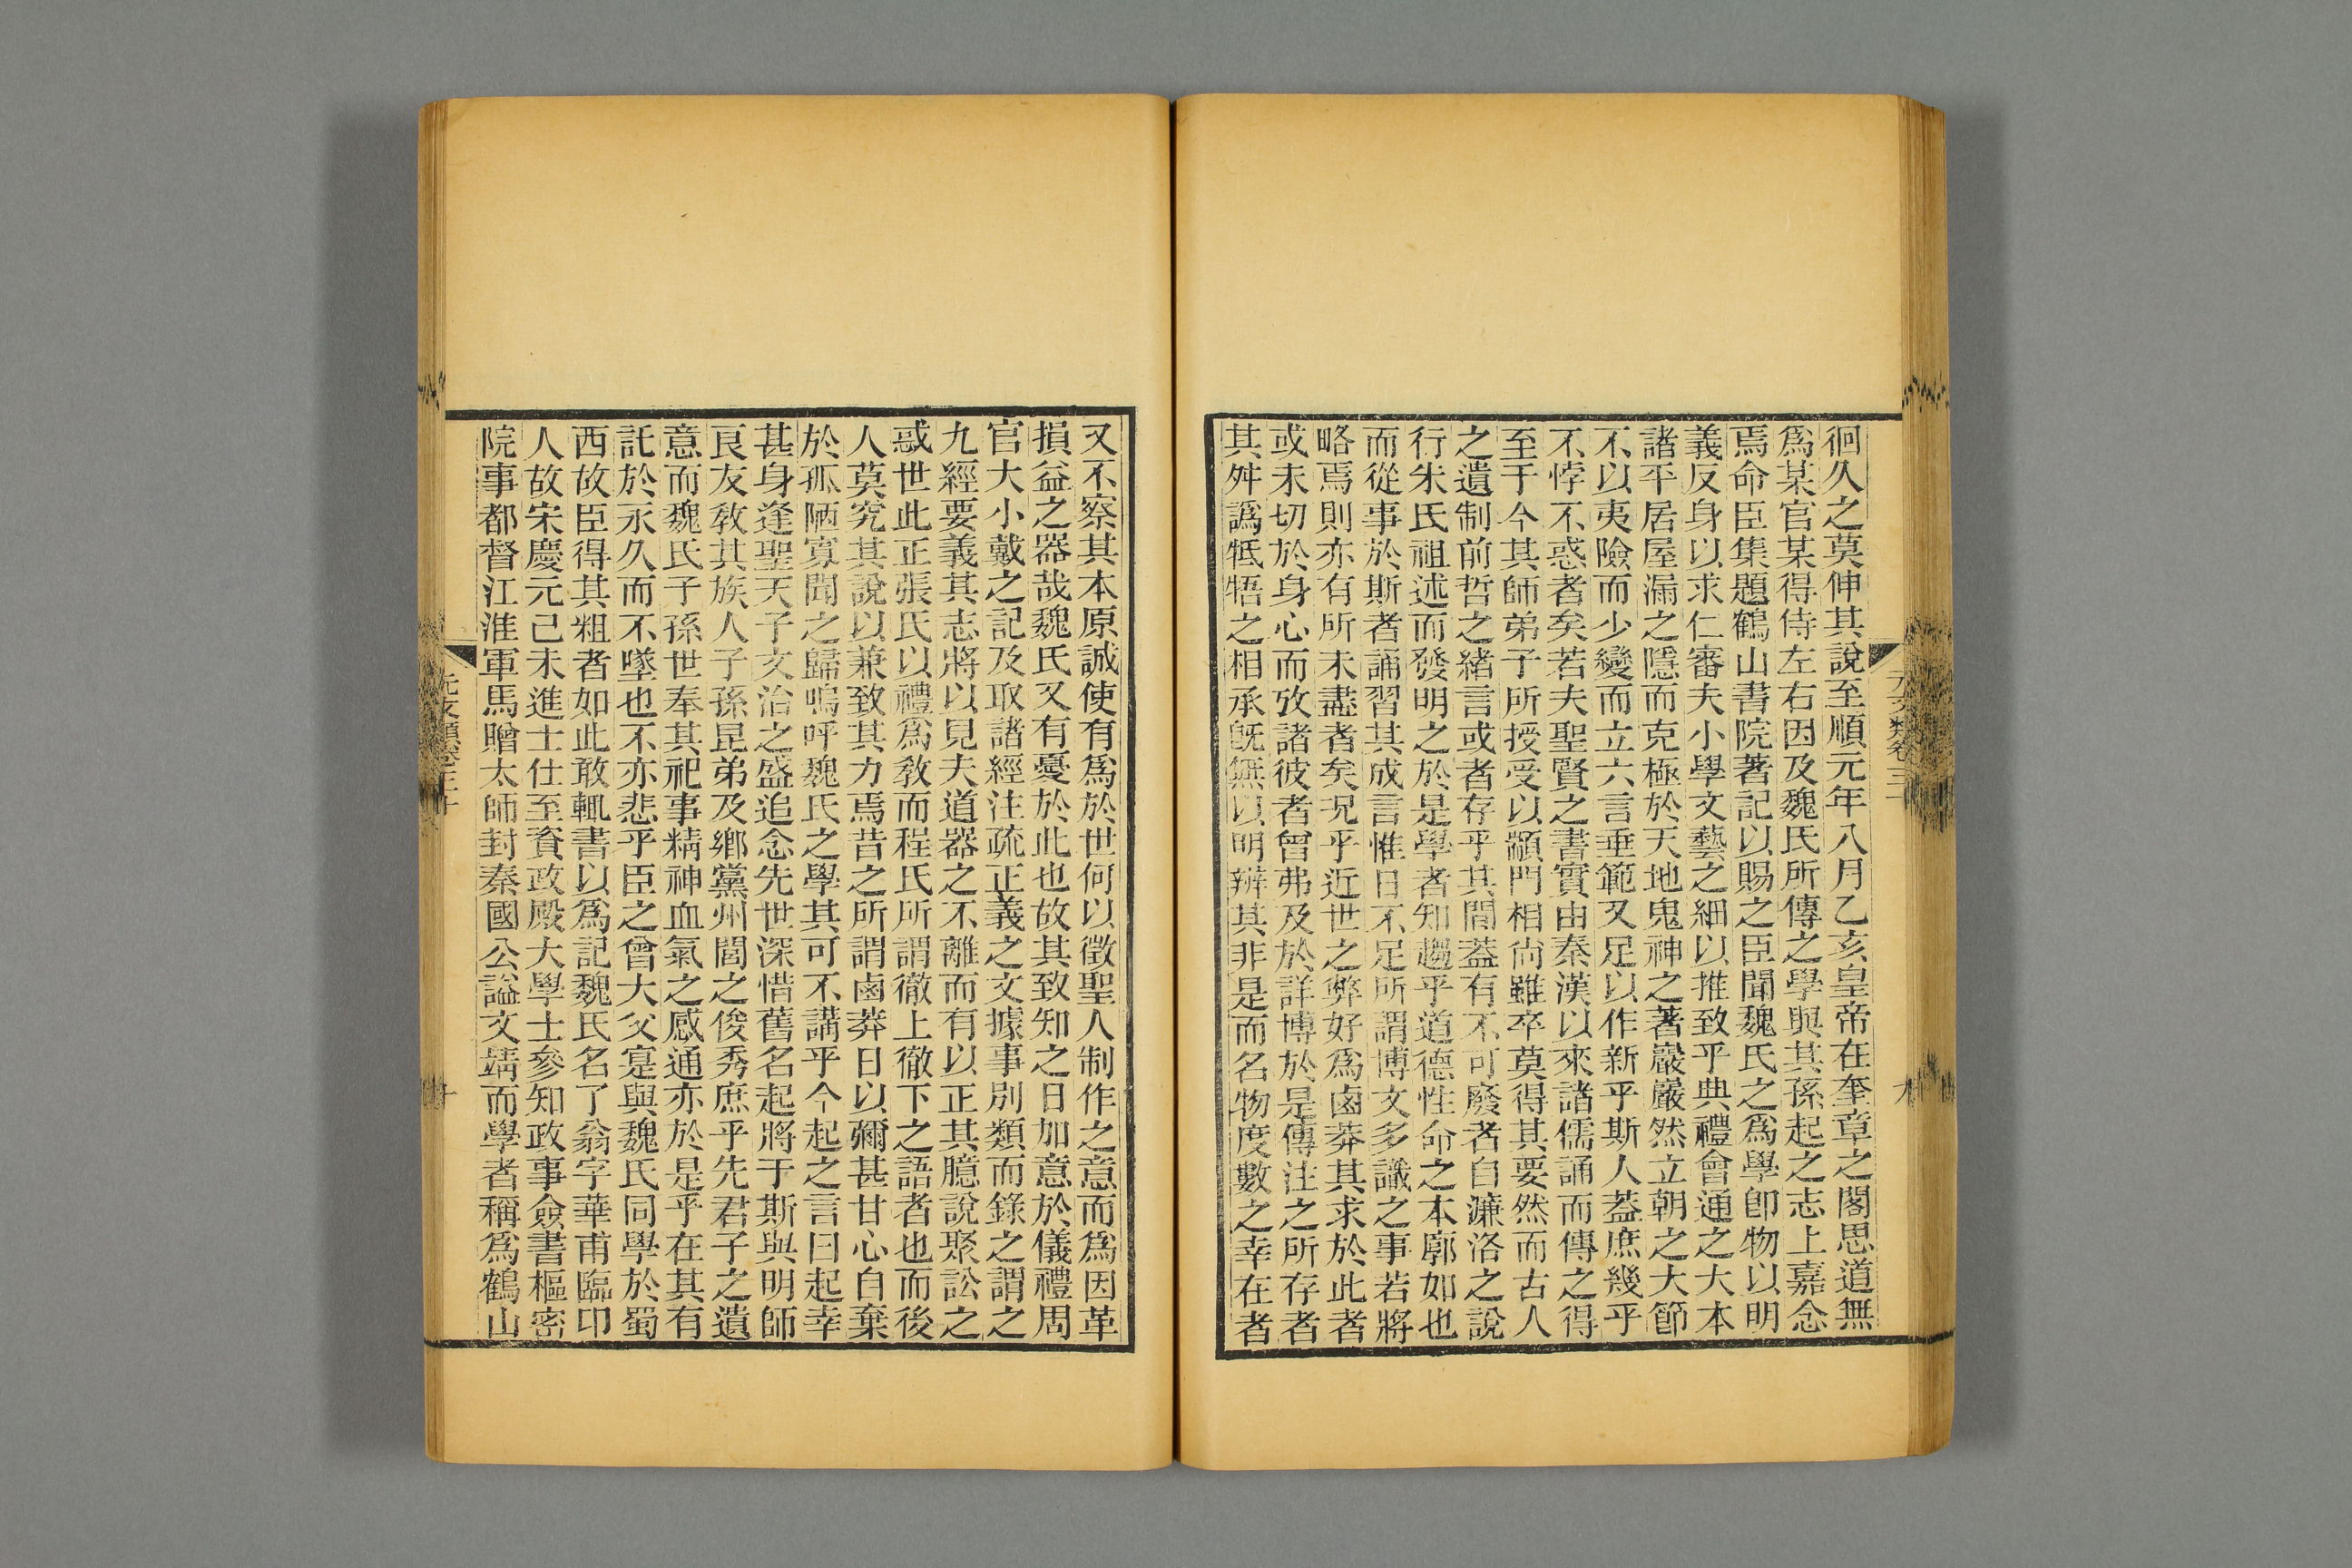 徊久之莫伸其說至順元年八月乙亥皇帝在奎章之閣思道無
爲某官某得侍左右因及魏氏所傳之學與其孫起之志上嘉念
焉命臣集題鶴山書院著記以賜之臣聞魏氏之爲學卽物以明
義反身以求仁審夫小學文藝之細以推致乎典禮會通之大本
諸平居屋漏之隱而克極於天地鬼神之著巖巖然立朝之大節
不以夷險而少變而立六言垂範又足以作新乎斯人蓋庶幾乎
不悖不惑者矣若夫聖賢之書實由秦漢以來諸儒誦而傳之得
至于今其師弟子所授受以顓門相尙雖卒莫得其要然而古人
之遺制前哲之緒言或者存乎其閒蓋有不可廢者自濂洛之說
行朱氏祖述而發明之於是學者知趨乎道德性命之本廓如也
而從事於斯者誦習其成言惟日不足所謂博文多識之事若將
略焉則亦有所未盡者矣況乎近世之弊好爲鹵莽其求於此者
或未切於身心而攷諸彼者曾弗及於詳博於是傳注之所存者
其舛譌牴牾之相承旣無以明辨其非是而名物度數之幸在者
又不察其本原誠使有爲於世何以徵聖人制作之意而爲因革
損益之器哉魏氏又有憂於此也故其致知之日加意於儀禮周
官大小戴之記及取諸經注疏正義之文據事別類而錄之謂之
九經要義其志將以見夫道器之不離而有以正其臆說聚訟之
惑世此正張氏以禮爲敎而程氏所謂徹上徹下之語者也而後
人莫究其說以兼致其力焉昔之所謂鹵莽日以彌甚甘心自棄
於孤陋寡聞之歸嗚呼魏氏之學其可不講乎今起之言曰起幸
甚身逢聖天子文治之盛追念先世深惜舊名起將于斯與明師
良友敎其族人子孫昆弟及鄉黨州閭之俊秀庶乎先君子之遺
意而魏氏子孫世奉其祀事精神血氣之感通亦於是乎在其有
託於永久而不墜也不亦悲乎臣之曾大父寔與魏氏同學於蜀
西故臣得其粗者如此敢輒書以爲記魏氏名了翁字華甫臨卭
人故宋慶元己未進士仕至資政殿大學士參知政事僉書樞密
院事都督江淮軍馬贈太師封秦國公謚文靖而學者稱爲鶴山